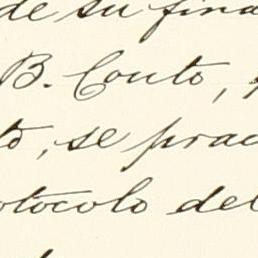 de su fina
B. Couto,
to, se prac
otocolo del